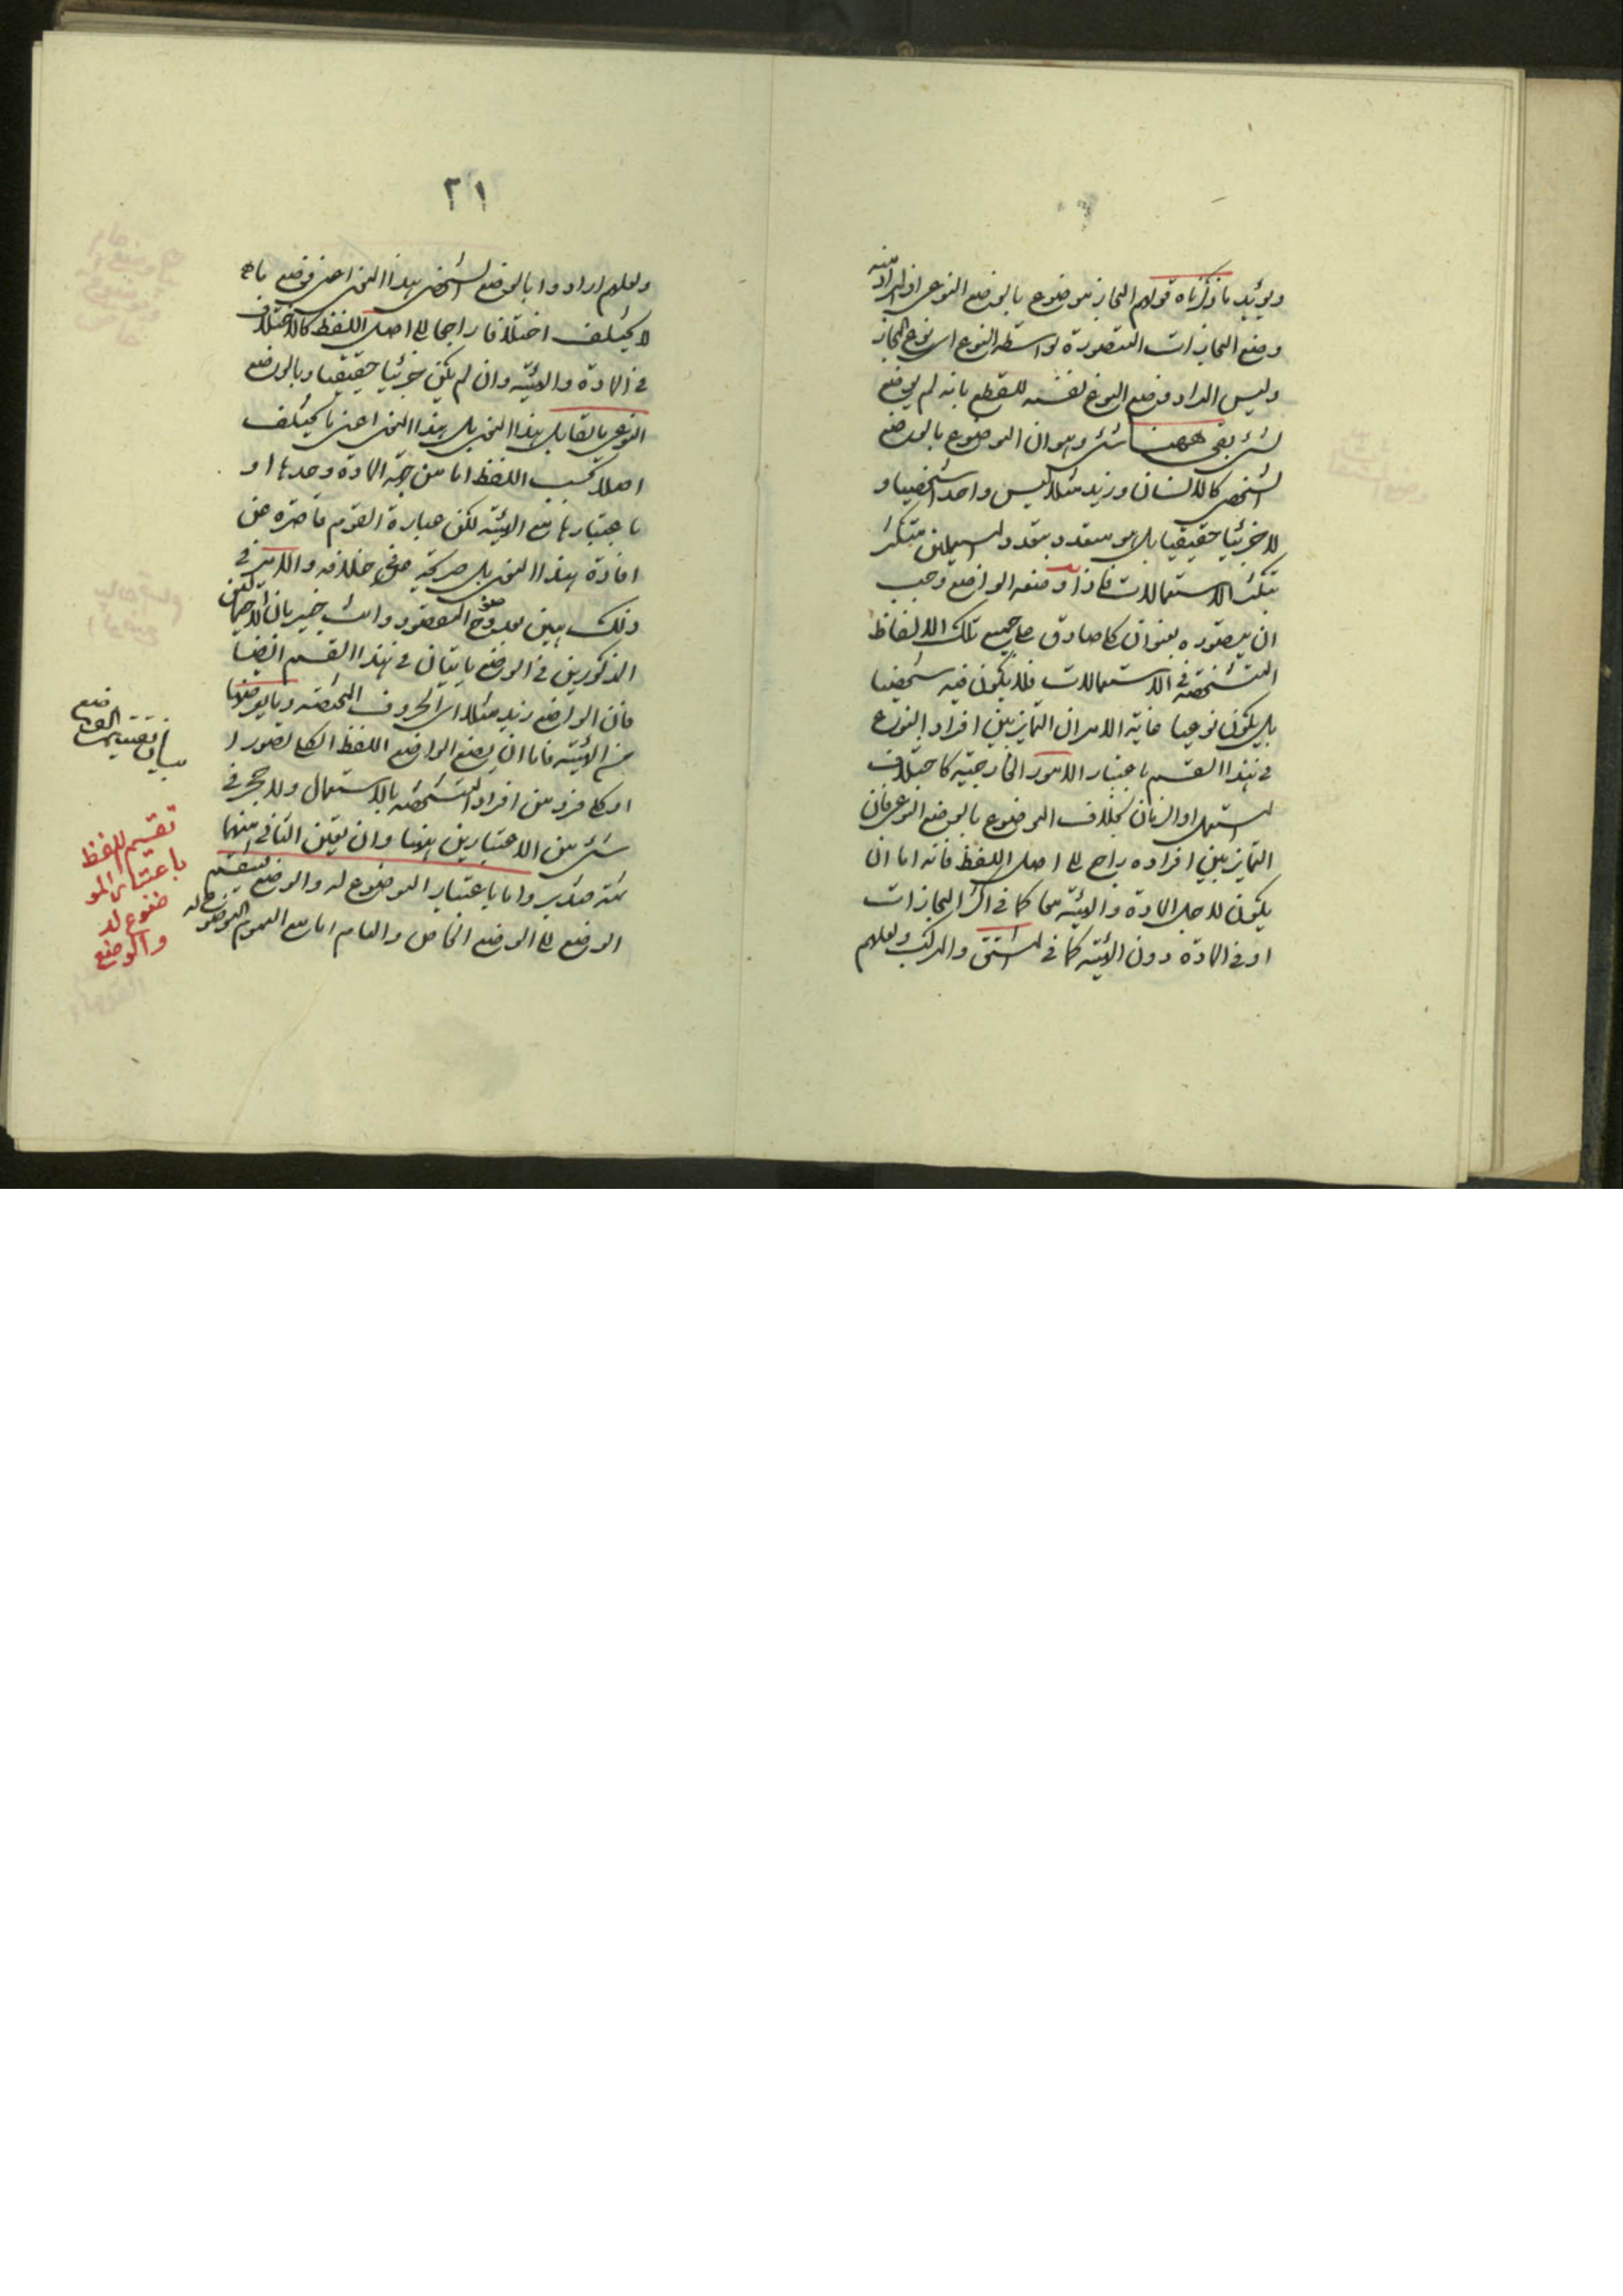 ويؤيد ما ذكرناه قولهم المجاز موضوع بالوضع النوعى اذ المراد منه
وضع المجازات المتصورة بواسطة النوع اى نوع المجاز
وليس المراد وضع النوع نفسه للقطع بانه لم يوضع
لشئ بقى ههنا شئ وهو ان الموضوع بالوضع
الشخصى كالانسان وزيد مثلا ليس واحدا شخصيا و
لا جزئيا حقيقيا بل هو متعدد بتعدد المستعملين متكثر
بتكثر الاستعمالات فاذا وضعه الواضع وجب
ان يتصوره بعنوان كلى صادق على جميع تلك الالفاظ
المتشخصة فى الاستعمالات فلا يكون فيه شخصيا
بل يكون نوعيا غاية الامر ان التمايز بين افراد النوع
فى هذا القسم باعتبار الامور الخارجية كاختلاف
المستعمل او الزمان بخلاف الموضوع بالوضع النوعى فان
التمايز بين افراده راجع الى اصل اللفظ فانه اما ان
يكون لاجل المادة والهيئة معا كما فى اكثر المجازات
او فى المادة دون الهيئة كما فى المشتق والمركب ولعلهم
٢١
ولعلهم ارادوا بالوضع الشخصى هذا النحو اعنى وضع ما
لا يختلف اختلافا راجعا الى اصل اللفظ كالاختلاف
فى المادة والهيئة وان لم يكن جزئيا حقيقيا وبالوضع
النوعى ما يقابل هذا النحو بل هذا النحو اعنى ما يختلف
اصلا بحسب اللفظ اما من جهة المادة وحدها او
باعتبارها مع الهيئة لكن عبارة القوم قاصرة عن
افادة هذا المعنى بل صريحة فى خلافه والامر فى
ذلك هين بعد وضوح المقصود وانت خبير بان الاحتمالين
المذكورين فى الوضع يأتيان فى هذا القسم ايضا
فان الواضع زيد مثلا اى الحروف المخصوصة وما يعرضها
من الهيئة فاما ان يضع الواضع اللفظ الكلى المتصور ا
او كل فرد من افراد المتشخصة بالاستعمال ولا حجر فى
شئ من الاعتبارين ايضا وان تعين الثانى منهما
ثمة فتدبر واما باعتبار الموضوع له والوضع فينقسم
الوضع الى الوضع الخاص والعام اما مع العموم الموضوع له
بيان تقسيم الوضع
تقسيم للفظ
باعتبار المو
ضوع له
والوضع